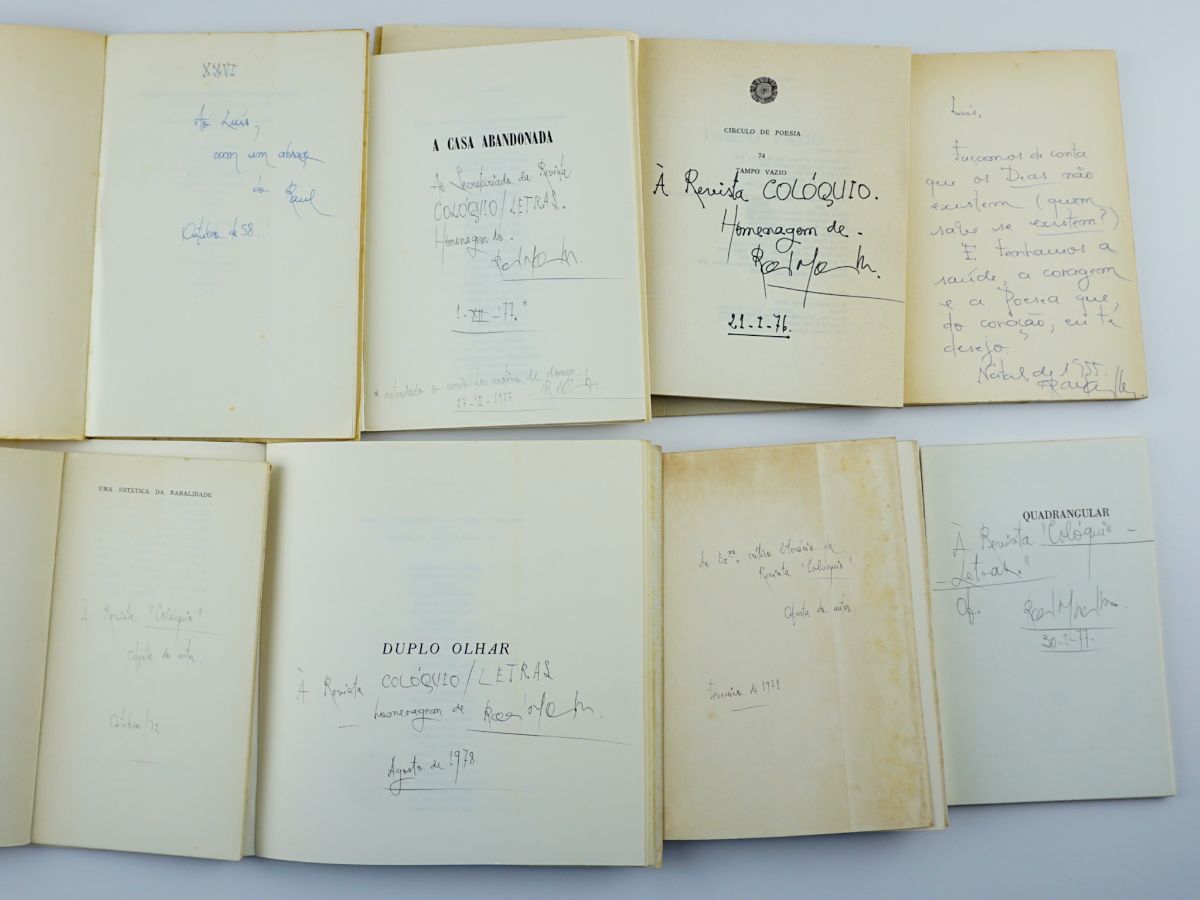 XXVI
Ao Luís,
com um abraço
do Raul.
Outubro de 58.
A CASA ABANDONADA
Ao Secretariado da Revista
COLÓQUIO/LETRAS.
Homenagem do.
1-XII-77.*
* retardado o envio por motivo de doença.
27-II-1977
CIRCULO DE POESIA
74
TAMPO VAZIO
À Revista COLÓQUIO.
Homenagem de
21-I-76.
Luís,
Façamos de conta
que os Dias não
existem (quem
sabe se existem?)
E tenhamos a
saúde, a coragem
e a Poesia que,
do coração, eu te
desejo.
Natal de 1955
UMA ESTÉTICA DA BANALIDADE
À Revista "Colóquio".
Oferta do autor.
Outubro/72
DUPLO OLHAR
À Revista COLÓQUIO/LETRAS
homenagem de
Agosto de 1978
Ao Exmo. crítico literário da
Revista "Colóquio"
Oferta do autor.
Fevereiro de 1971
QUADRANGULAR
À Revista "Colóquio-
-Letras."
Of.
30-I-77.